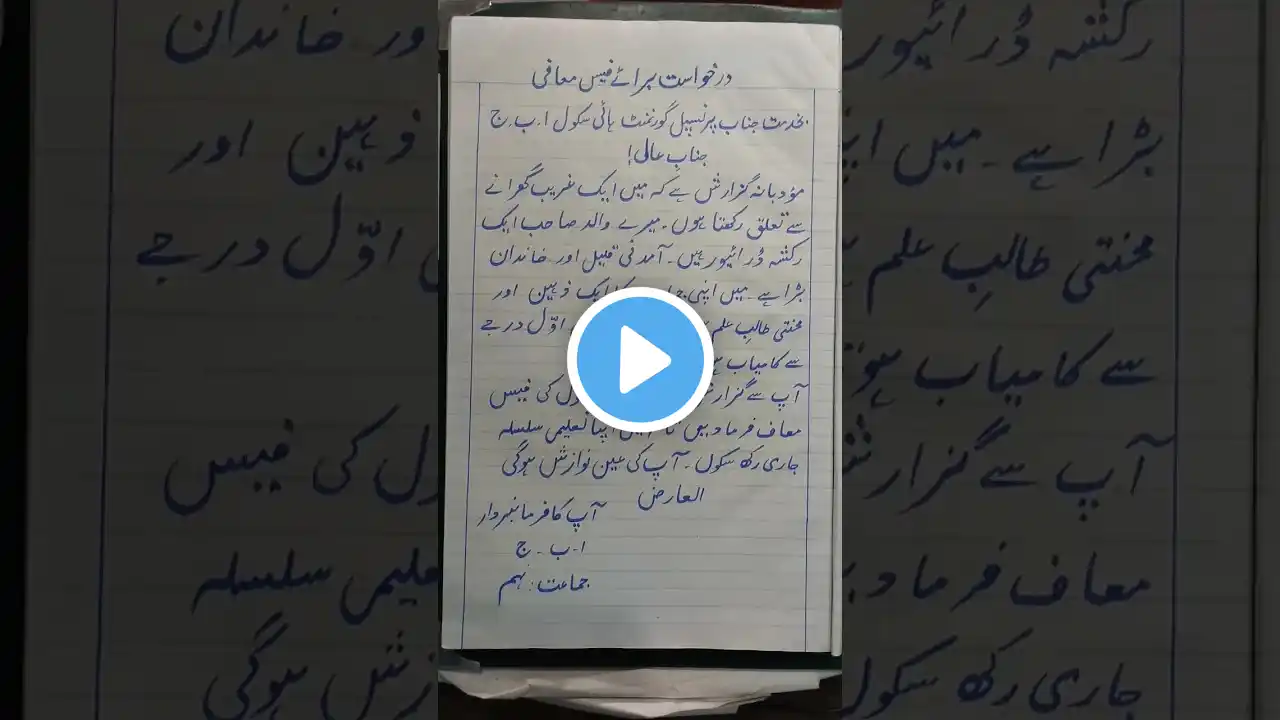 درخواست برائے فیس معافی
بخدمت جناب پرنسپل گورنمنٹ ہائی سکول ا۔ب۔ج
جنابِ عالی!
مؤدبانہ گزارش ہے کہ میں ایک غریب گھرانے
سے تعلق رکھتا ہوں۔ میرے والد صاحب ایک
رکشہ ڈرائیور ہیں۔ آمدنی قلیل اور خاندان
بڑا ہے۔ میں اپنی ایک ذہین اور
محنتی طالبِ علم اوّل درجے
سے کامیاب
آپ سے گزارش کی فیس
معاف فرما دیں اپنا تعلیمی سلسلہ
جاری رکھ سکوں۔ آپ کی عین نوازش ہوگی
العارض
آپ کا فرمانبردار
ا۔ب۔ج
جماعت: نہم